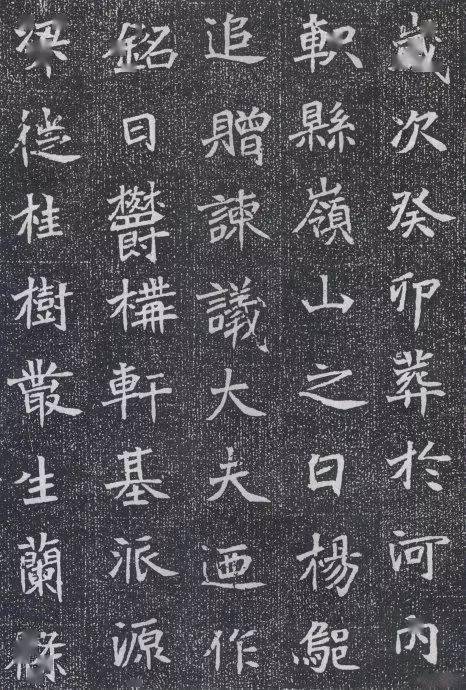 歲次癸卯葬於河內
軹縣嶺山之白楊鄔
追贈諫議大夫迺作
銘曰鬱構軒基派源
梁徙桂樹叢生蘭條